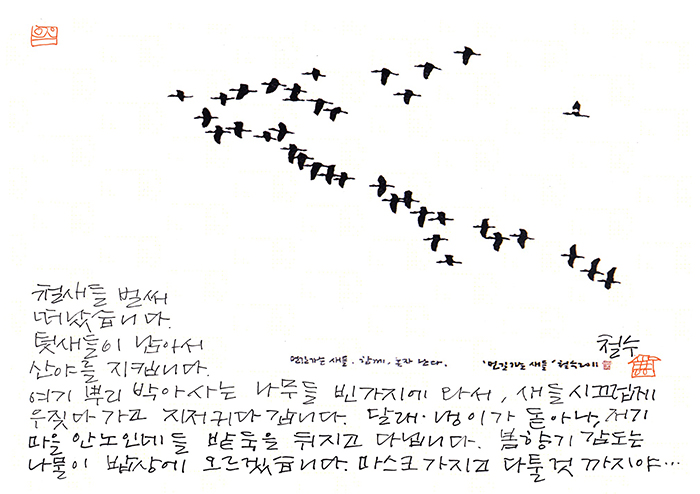 철새들 벌써
떠났습니다.
텃새들이 남아서
산야를 지킵니다.
먼길가는 새들. 함께, 혼자 난다.
'먼길 가는 새들' 철수 2011
철수
여기 뿌리 박아 사는 나무들 빈가지에 와서, 새들 시끄럽게
우짖다 가고 지저귀다 갑니다. 달래·냉이가 돋아나, 저기
마을 안노인네들 밭둑을 뒤지고 다닙니다. 봄향기 감도는
나물이 밥상에 오르겠습니다. 마스크 가지고 다툴 것 까지야…